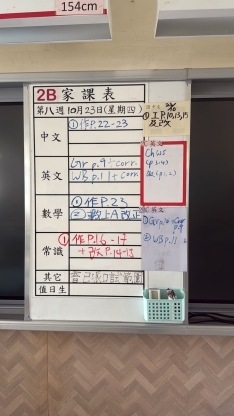 154cm
2B 家課表
第八週 10月23日(星期四)
中文
①作P.22-23
英文
Gr p.9+corr.
WB p.11+corr.
數學
①作P.23
②數上A改正
常識
①作P.16-17
+改P.14-15
其它
值日生
①工P.10,13,15
及改
英文
Ch WS
(p.3-4)
(p.1,2)
英文
p.9
② WB p.11